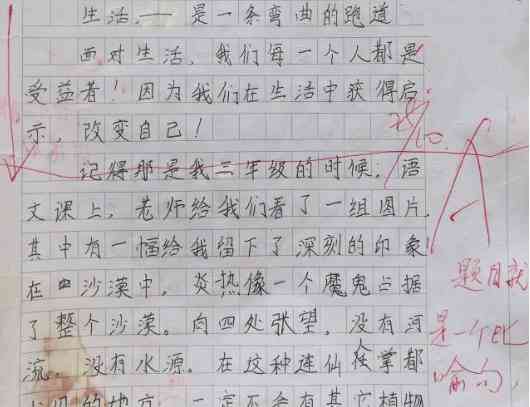 生活,——是一条弯曲的跑道
面对生活,我们每一个人都是
受益者!因为我们在生活中获得启
示,改变自己!
记得那是我三年级的时候,语
文课上,老师给我们看了一组图片,
其中有一幅给我留下了深刻的印象
在沙漠中,炎热像一个魔鬼占据
了整个沙漠。向四处张望,没有河
流,没有水源。在这种连仙人掌都
的地方,一定不会有其它植物
题目就
是一个比
喻句,